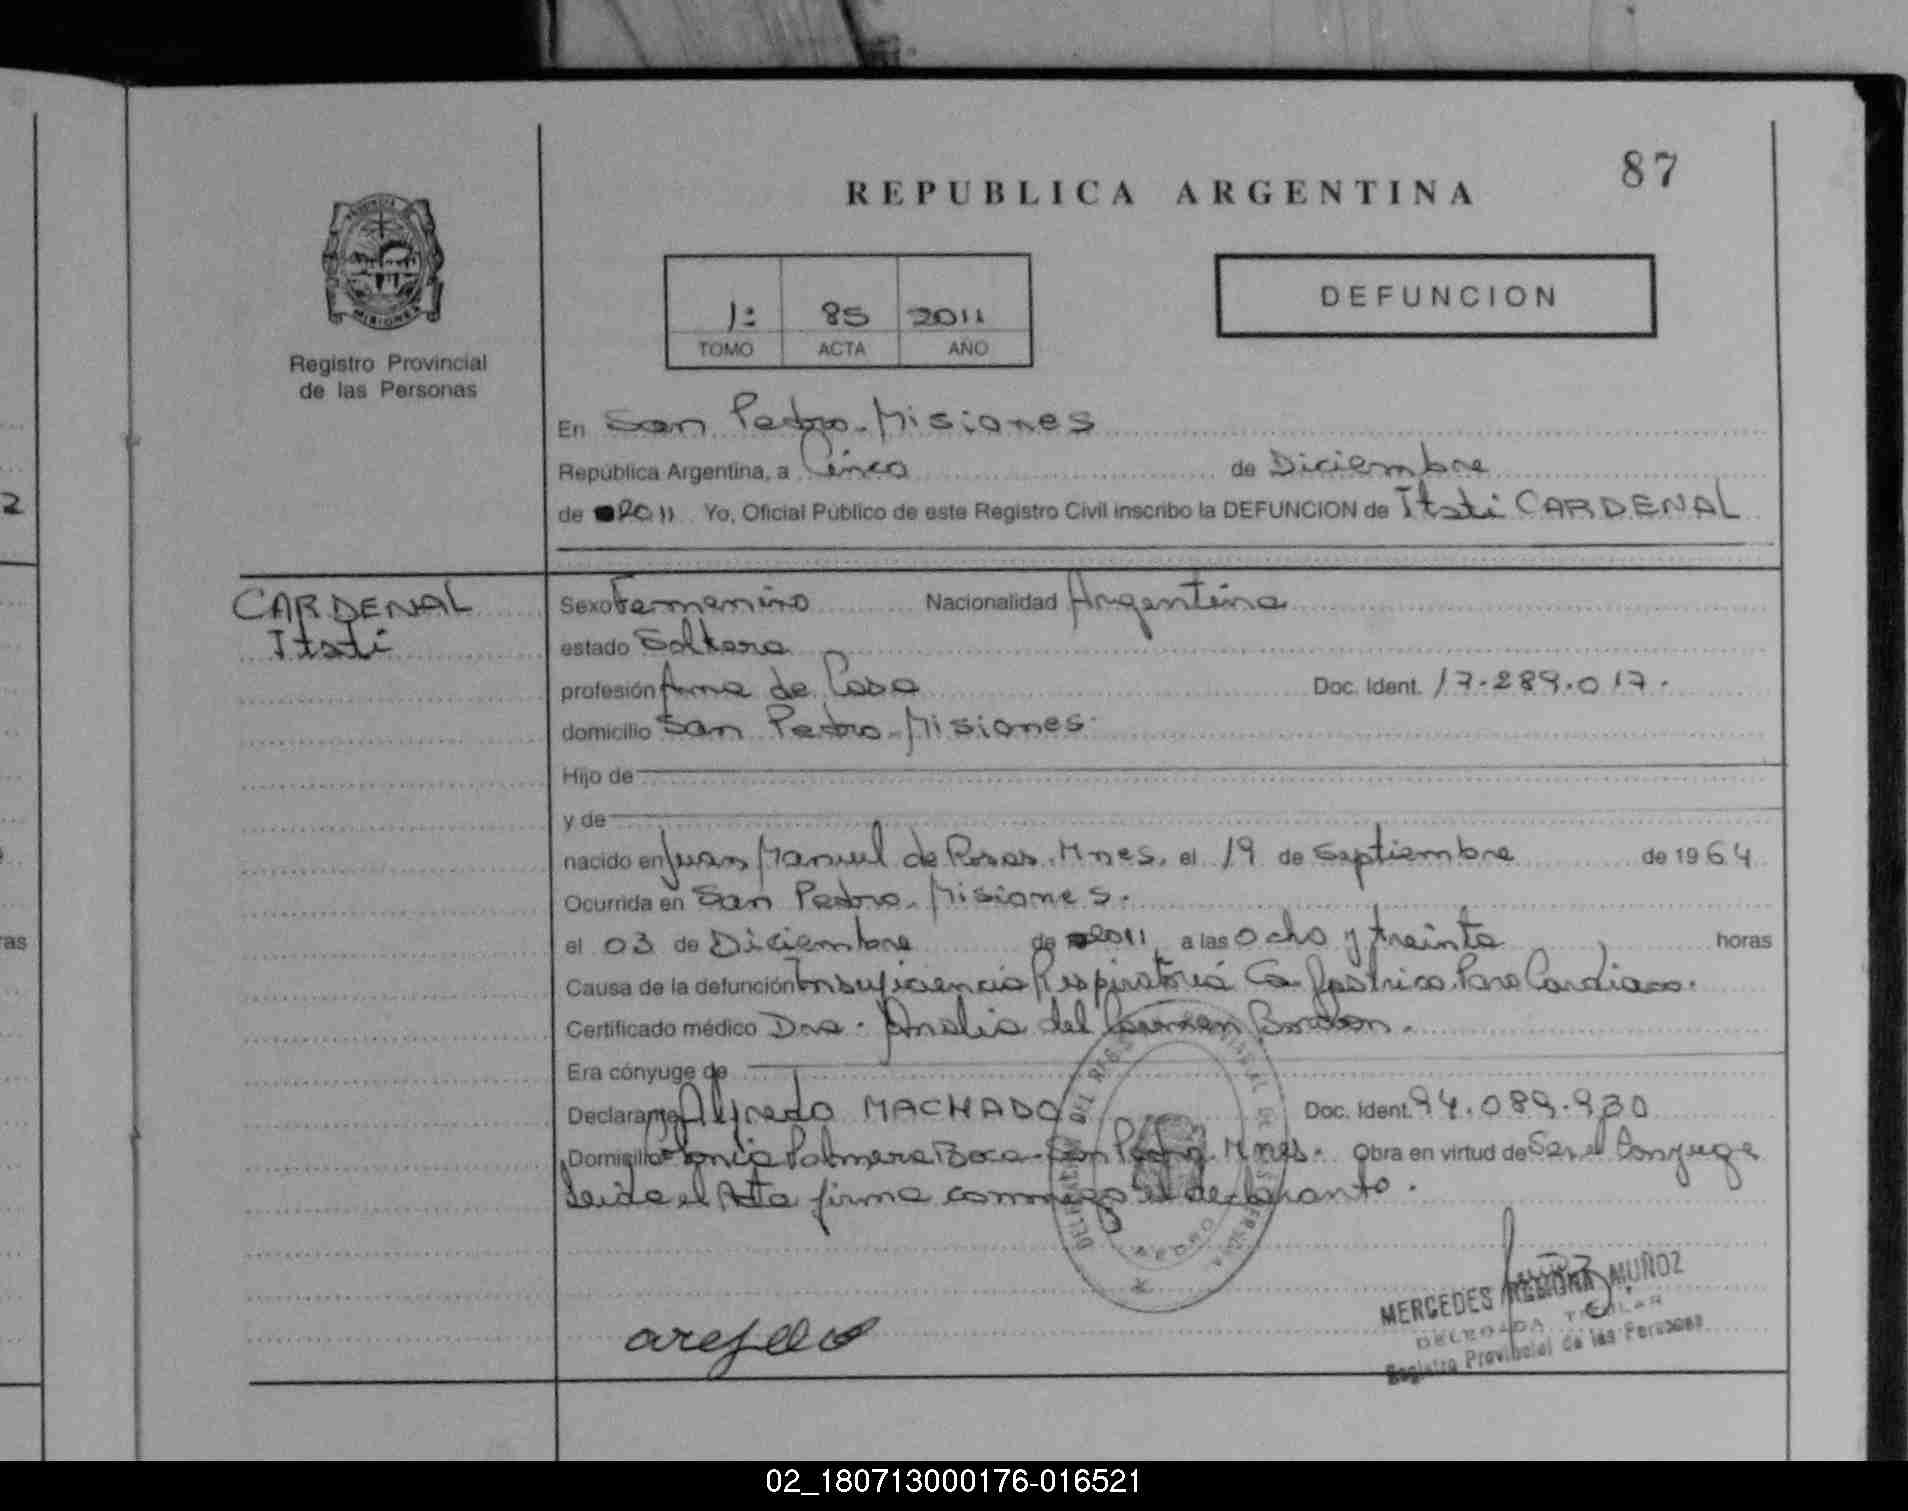 87
REPUBLICA ARGENTINA
1: 85 2011
TOMO ACTA AÑO
DEFUNCION
MISIONES
Registro Provincial
de las Personas
En San Pedro-Misiones
República Argentina, a Cinco de Diciembre
de 2011 Yo, Oficial Público de este Registro Civil inscribo la DEFUNCION de Itati CARDENAL
2
CARDENAL
Itati
Sexo Femenino Nacionalidad Argentina
estado Soltera
profesión Ama de Casa Doc. Ident. 17.289.017.
domicilio San Pedro-Misiones.
Hijo de
y de
nacido en Juan Manuel de Rosas. Mnes. el 19 de Septiembre de 1964
Ocurrida en San Pedro-Misiones.
ras
el 03 de Diciembre de 2011 a las Ocho y treinta horas
Causa de la defunción Insuficiencia Respiratoria Ca Gastrico. Paro Cardiaco.
Certificado médico Dra. Analia del Carmen
Era cónyuge de
Declarante Alfredo MACHADO Doc. Ident. 94.089.930
Domicilio Colonia Palmera Boca-San Pedro. Mnes. Obra en virtud de Ser el Conyuge
Leida el Acta firma conmigo el declarante.
MERCEDES RAMONA MUÑOZ
DELEGADA TITULAR
Registro Provincial de las Personas
02_180713000176-016521